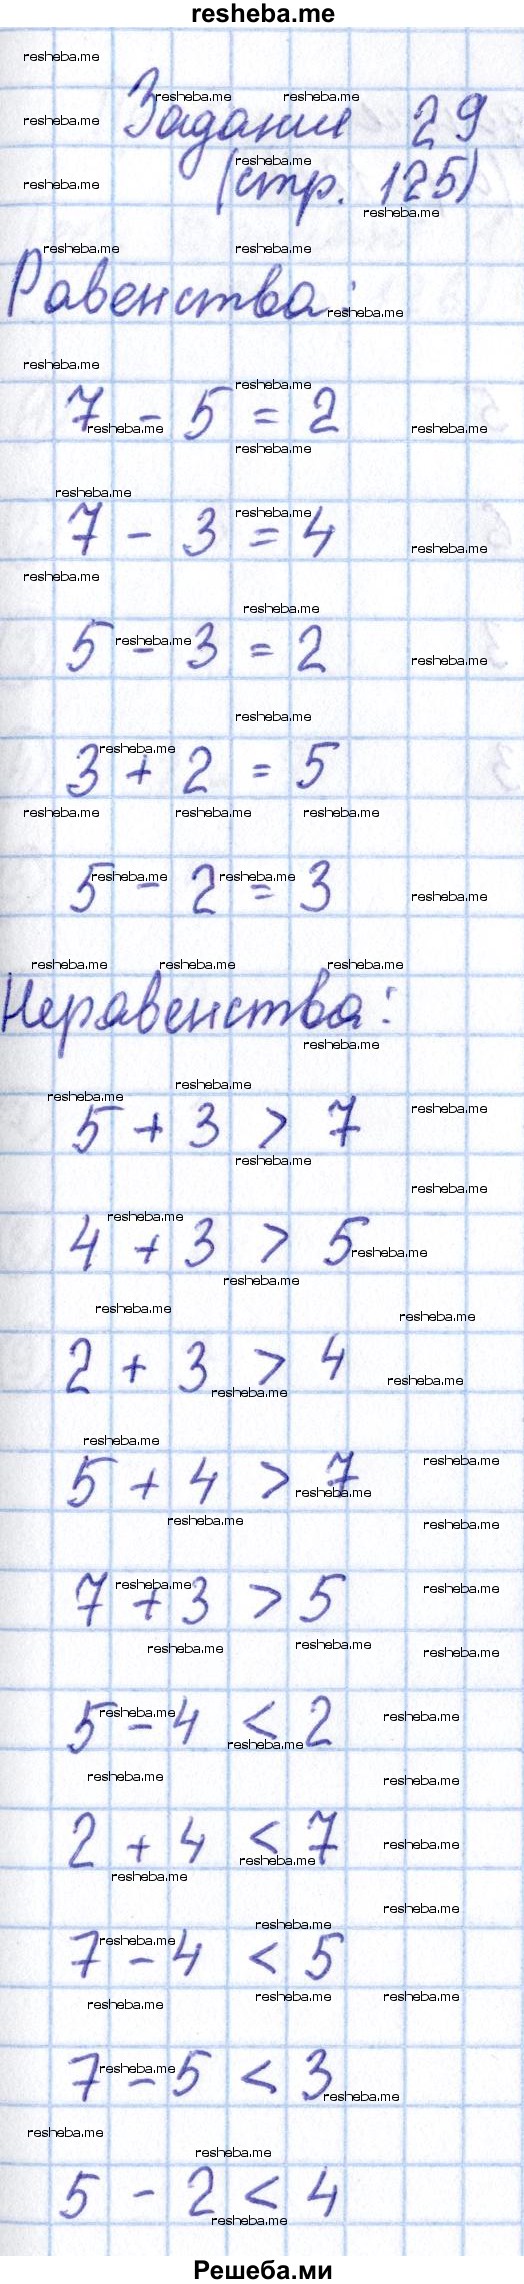 resheba.me
Задание 29
(стр. 125)
Равенства:
7 - 5 = 2
7 - 3 = 4
5 - 3 = 2
3 + 2 = 5
5 - 2 = 3
Неравенства:
5 + 3 > 7
4 + 3 > 5
2 + 3 > 4
5 + 4 > 7
7 + 3 > 5
5 - 4 < 2
2 + 4 < 7
7 - 4 < 5
7 - 5 < 3
5 - 2 < 4
Решеба.ми